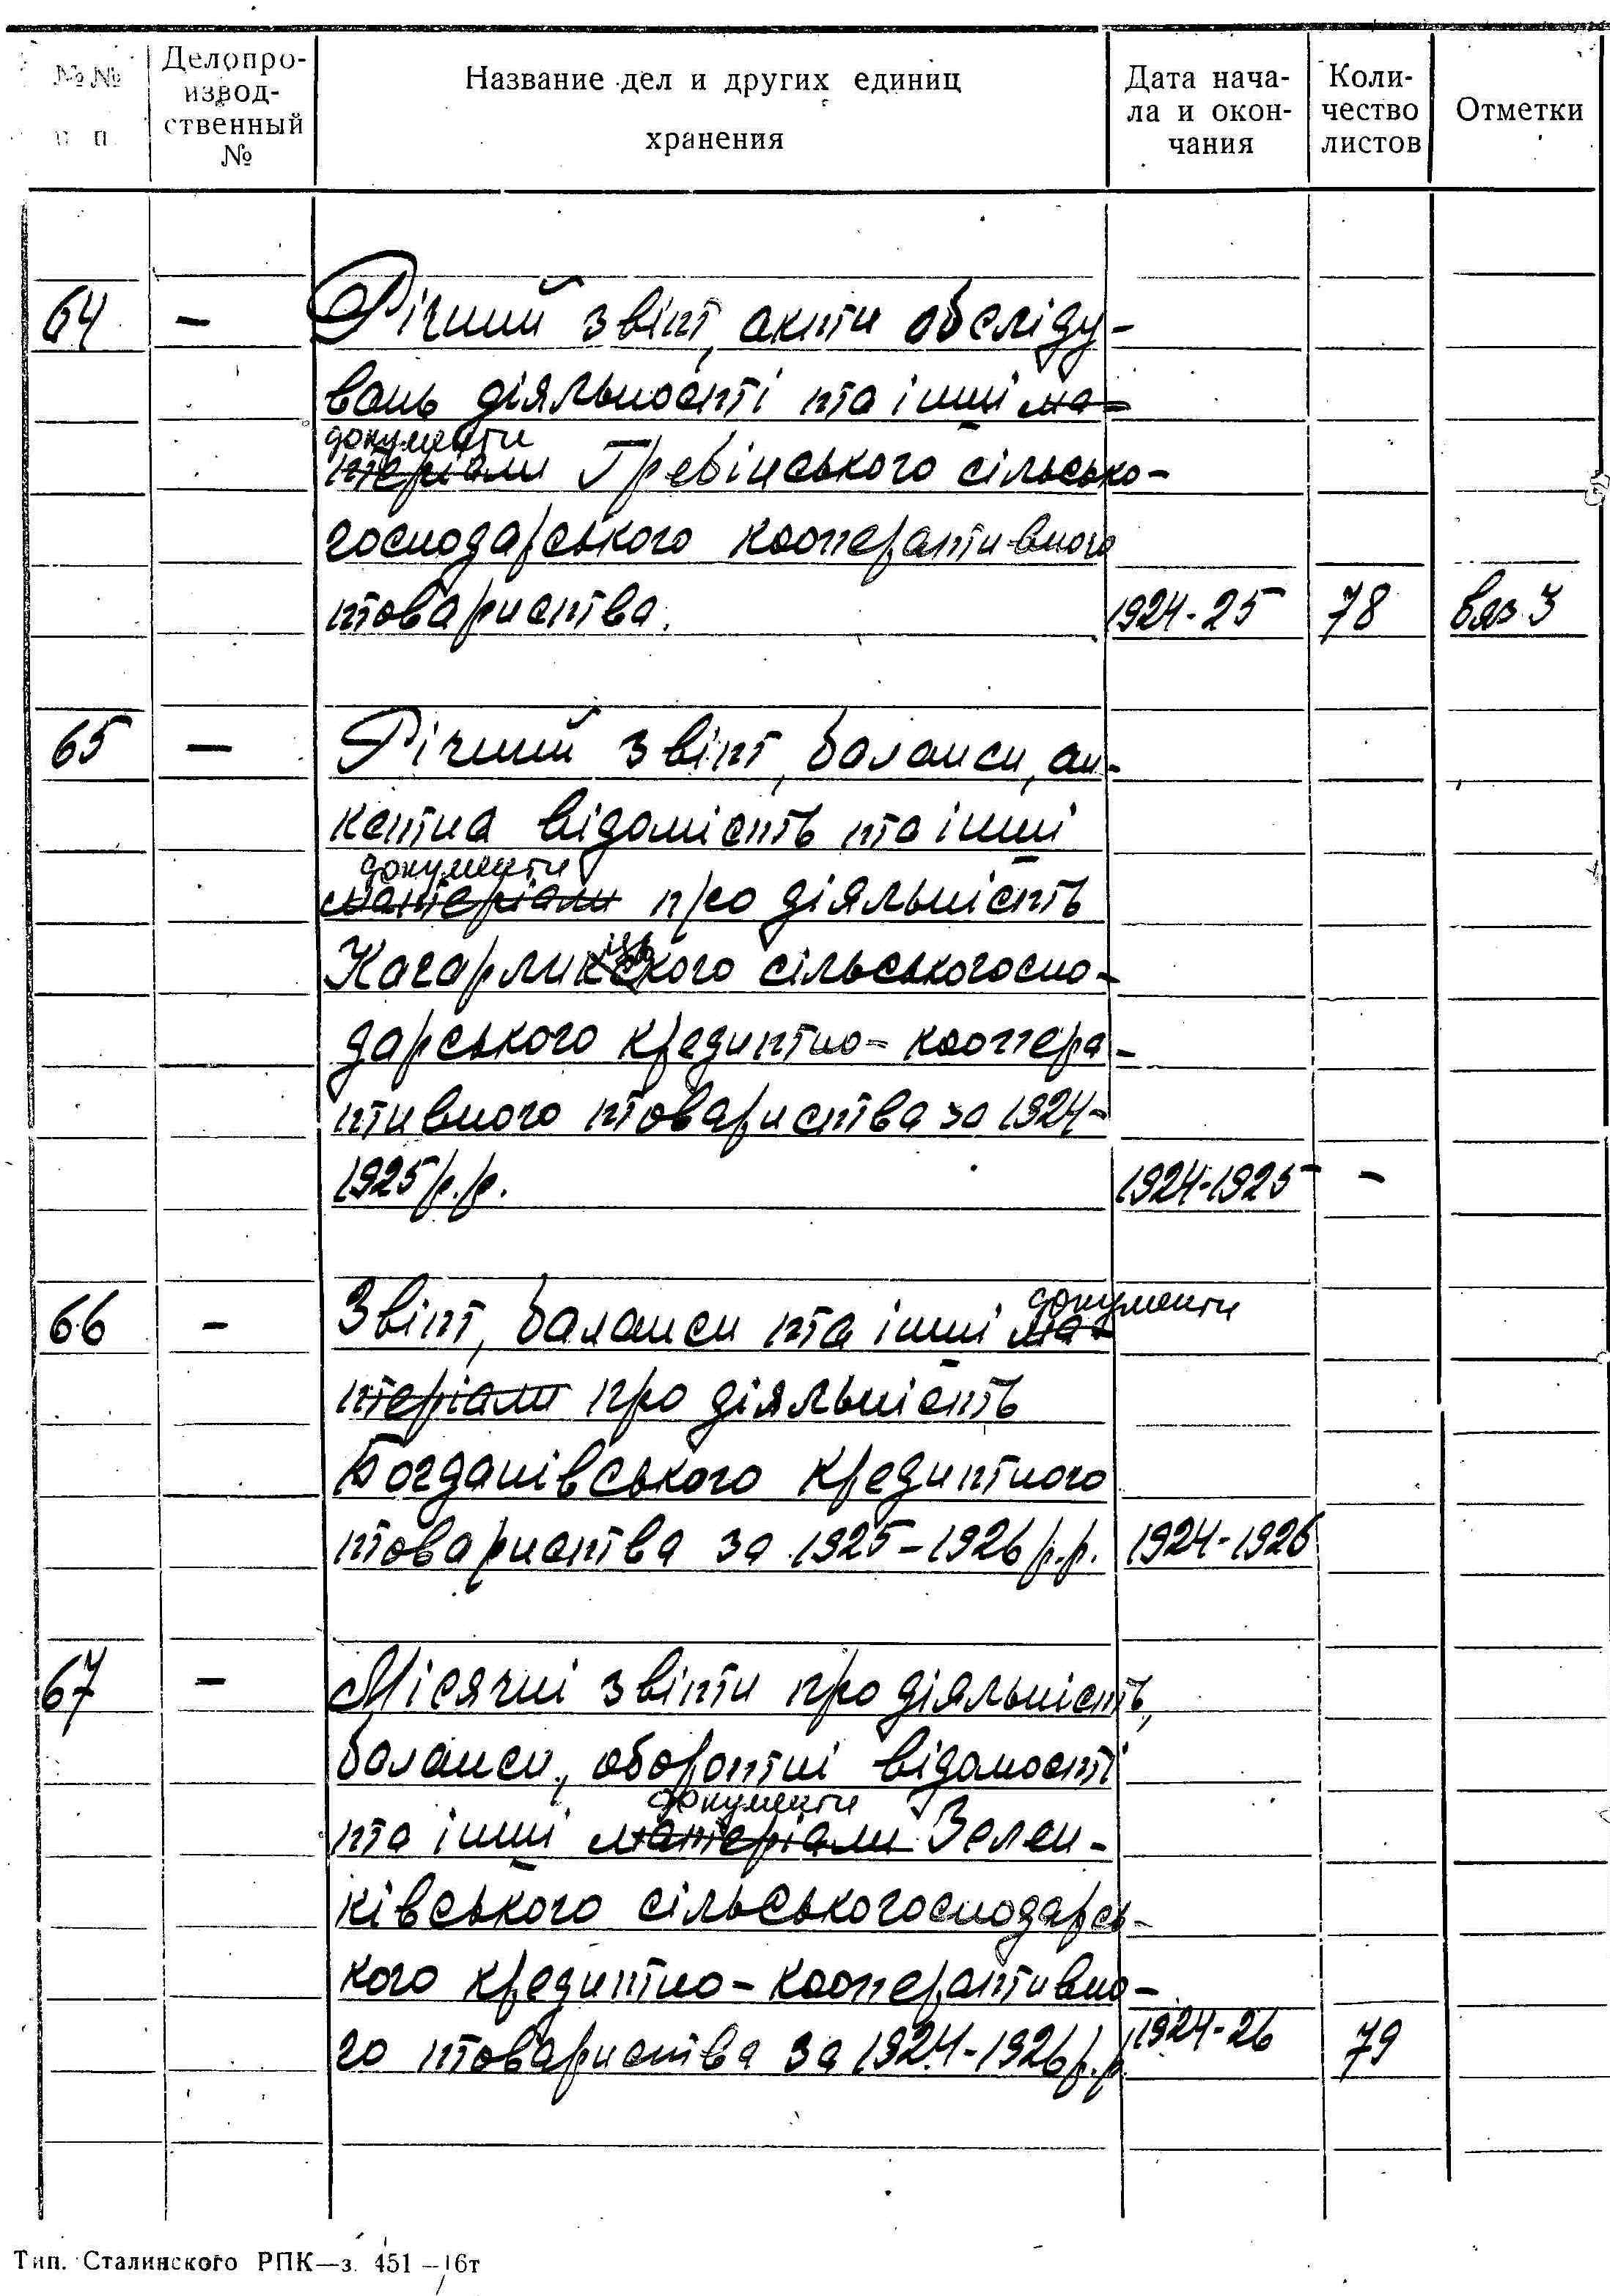 №№ п п.
Делопро-
извод-
ственный
№
Название дел и других единиц
хранения
Дата нача-
ла и окон-
чания
Коли-
чество
листов
Отметки
64 – Річний звіт, акти обсліду-
вань діяльності та інші ма-
документи
теріали Гребінського сільсько-
господарського кооперативного
товариства. 1924-25 78 вяз. 3
65 – Річний звіт, баланси, ан-
кетна відомість та інші
документи
матеріали про діяльність
Кагарлицького сільськогоспо-
дарського кредитно-коопера-
тивного товариства за 1924-
1925 р.р. 1924-1925 –
документи
66 – Звіт, баланси та інші ма-
теріали про діяльність
Богданівського кредитного
товариства за 1925-1926 р.р. 1924-1926
67 – Місячні звіти про діяльність,
баланси, оборотні відомості
документи
та інші матеріали Зелен-
ківського сільськогосподарсь-
кого кредитно-кооперативно-
го товариства за 1924-1926 р.р. 1924-26 79
Тип. Сталинского РПК—з. 451—16т